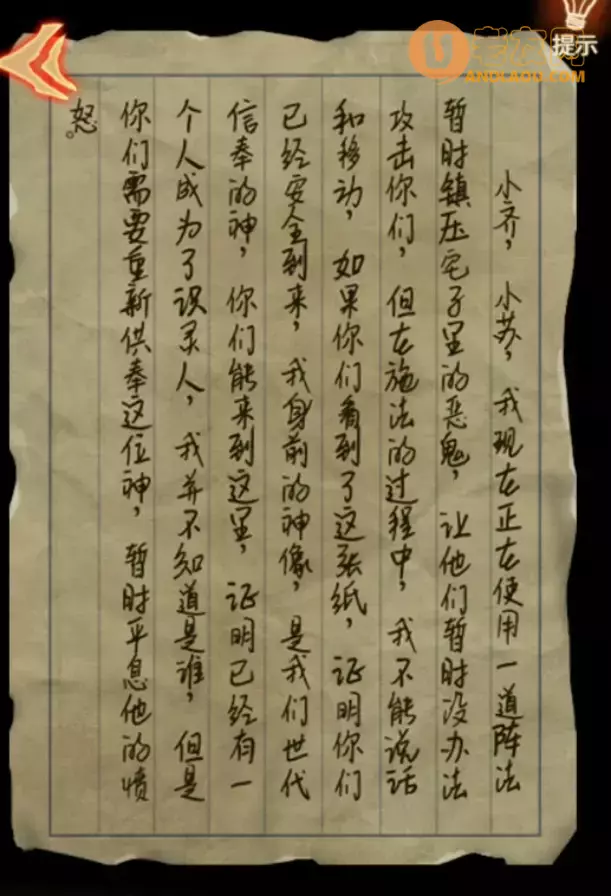 提示
小齐，小苏，我现在正在使用一道阵法
暂时镇压宅子里的恶鬼，让他们暂时没办法
攻击你们，但在施法的过程中，我不能说话
和移动，如果你们看到了这张纸，证明你们
已经安全到来，我身前的神像，是我们世代
信奉的神，你们能来到这里，证明已经有一
个人成为了识灵人，我并不知道是谁，但是
你们需要重新供奉这位神，暂时平息他的愤
怒。